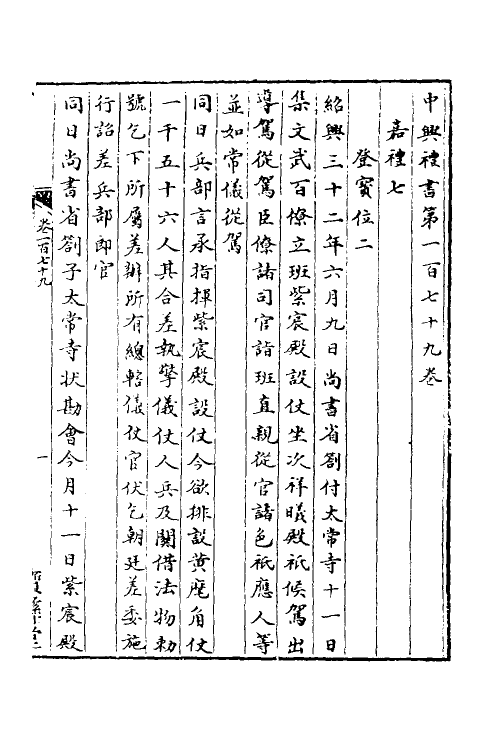 中興禮書第一百七十九卷
嘉禮七
登寶位二
紹興三十二年六月九日尚書省劄付太常寺十一日
集文武百僚立班紫宸殿設仗坐次祥曦殿祇候駕出
導駕從駕臣僚諸司官詣班直親從官諸色祇應人等
並如常儀從駕
同日兵部言承指揮紫宸殿設仗今欲排設黄麾角仗
一千五十六人其合差執擎儀仗人兵及關借法物勅
號乞下所屬差辦所有總轄儀仗官伏乞朝廷差委施
行詔差兵部郎官
同日尚書省劄子太常寺狀勘會今月十一日紫宸殿
卷一百七十九
一